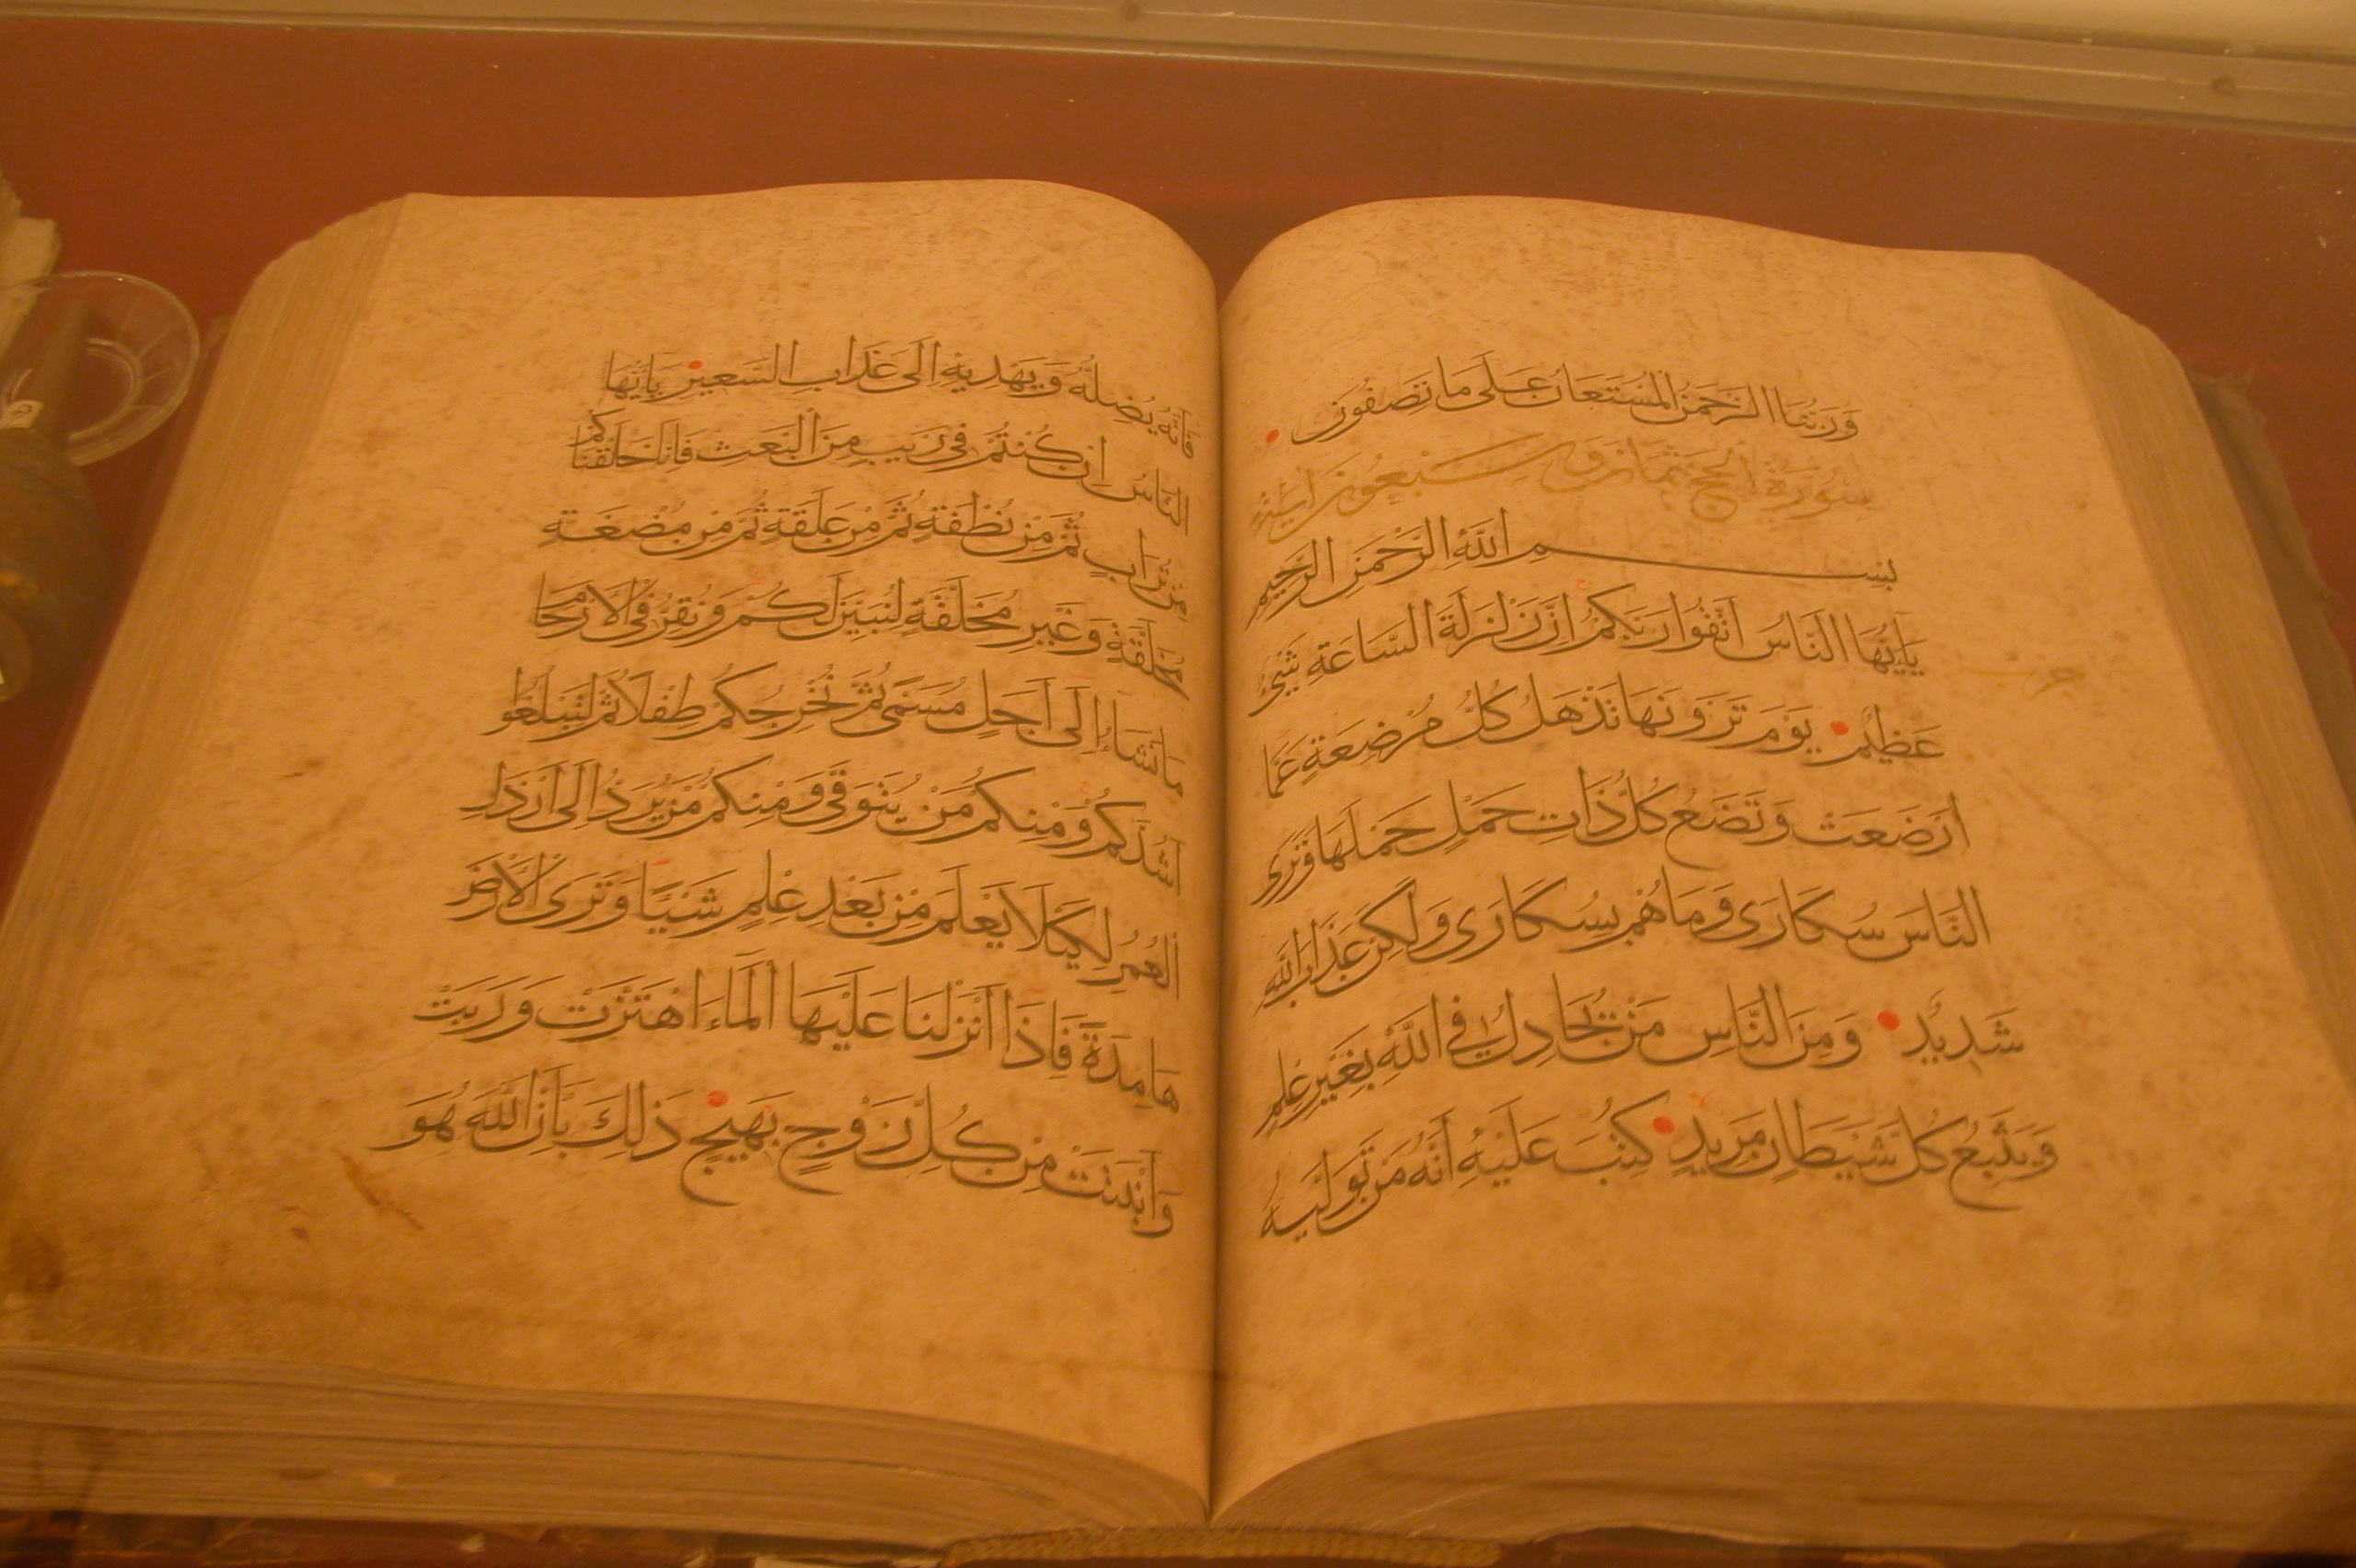 وَرَبُّنَا الرَّحْمَنُ الْمُسْتَعَانُ عَلَى مَا تَصِفُونَ
سُورَةُ الْحَجِّ ثَمَانٌ وَسَبْعُونَ آيَةً
بِسْمِ اللَّهِ الرَّحْمَنِ الرَّحِيمِ
يَا أَيُّهَا النَّاسُ اتَّقُوا رَبَّكُمْ إِنَّ زَلْزَلَةَ السَّاعَةِ شَيْءٌ
عَظِيمٌ يَوْمَ تَرَوْنَهَا تَذْهَلُ كُلُّ مُرْضِعَةٍ عَمَّا
أَرْضَعَتْ وَتَضَعُ كُلُّ ذَاتِ حَمْلٍ حَمْلَهَا وَتَرَى
النَّاسَ سُكَارَى وَمَا هُمْ بِسُكَارَى وَلَكِنَّ عَذَابَ اللَّهِ
شَدِيدٌ وَمِنَ النَّاسِ مَنْ يُجَادِلُ فِي اللَّهِ بِغَيْرِ عِلْمٍ
وَيَتَّبِعُ كُلَّ شَيْطَانٍ مَرِيدٍ كُتِبَ عَلَيْهِ أَنَّهُ مَنْ تَوَلَّاهُ
فَأَنَّهُ يُضِلُّهُ وَيَهْدِيهِ إِلَى عَذَابِ السَّعِيرِ يَا أَيُّهَا
النَّاسُ إِنْ كُنْتُمْ فِي رَيْبٍ مِنَ الْبَعْثِ فَإِنَّا خَلَقْنَاكُمْ
مِنْ تُرَابٍ ثُمَّ مِنْ نُطْفَةٍ ثُمَّ مِنْ عَلَقَةٍ ثُمَّ مِنْ مُضْغَةٍ
مُخَلَّقَةٍ وَغَيْرِ مُخَلَّقَةٍ لِنُبَيِّنَ لَكُمْ وَنُقِرُّ فِي الْأَرْحَامِ
مَا نَشَاءُ إِلَى أَجَلٍ مُسَمًّى ثُمَّ نُخْرِجُكُمْ طِفْلًا ثُمَّ لِتَبْلُغُوا
أَشُدَّكُمْ وَمِنْكُمْ مَنْ يُتَوَفَّى وَمِنْكُمْ مَنْ يُرَدُّ إِلَى أَرْذَلِ
الْعُمُرِ لِكَيْلَا يَعْلَمَ مِنْ بَعْدِ عِلْمٍ شَيْئًا وَتَرَى الْأَرْضَ
هَامِدَةً فَإِذَا أَنْزَلْنَا عَلَيْهَا الْمَاءَ اهْتَزَّتْ وَرَبَتْ
وَأَنْبَتَتْ مِنْ كُلِّ زَوْجٍ بَهِيجٍ ذَلِكَ بِأَنَّ اللَّهَ هُوَ